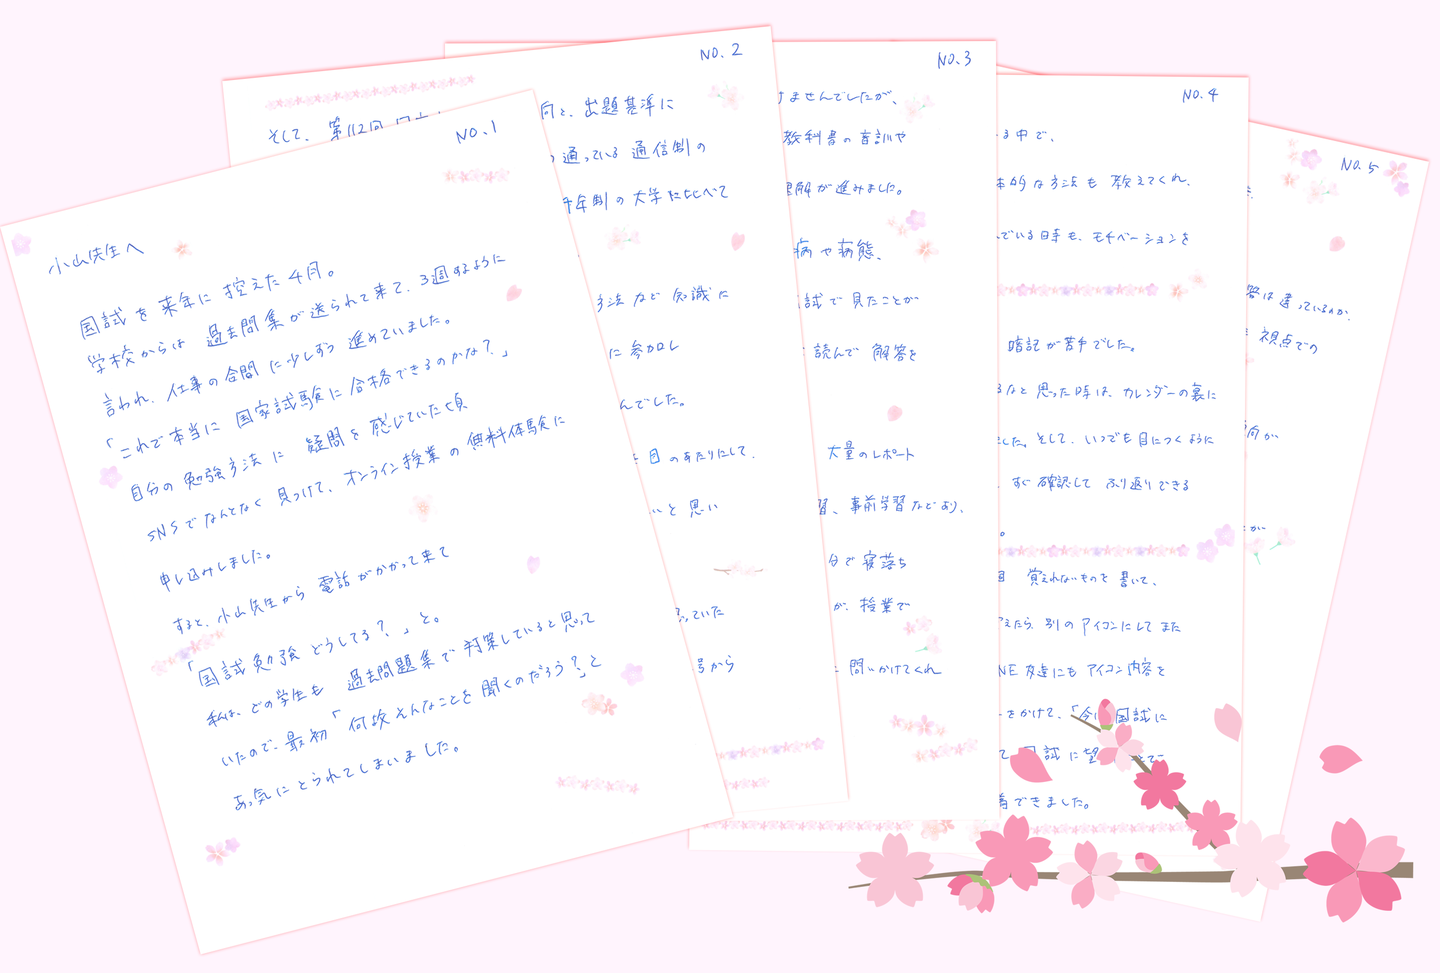 NO.1
小山先生へ
国試を来年に控えた4月。
学校からは過去問集が送られて来て、3週するように
言われ、仕事の合間に少しずつ進めていました。
「これで本当に国家試験に合格できるのかな?」
自分の勉強方法に疑問を感じていた頃
SNSでなんとなく見つけて、オンライン授業の無料体験に
申し込みしました。
すると、小山先生から電話がかかって来て
「国試勉強どうしてる?」と。
私は、どの学生も過去問題集で対策していると思って
いたので、最初「何故そんなことを聞くのだろう?」と
あっ気にとられてしまいました。
NO.2
そして、第112回
向と、出題基準に
通っている通信制の
年制の大学に比べて
方法など知識に
に参加し
んでした。
目のあたりにして、
いと思い
っていた
号から
NO.3
けませんでしたが、
教科書の音訓や
理解が進みました。
病や病態、
試で見たことが
読んで解答を
大量のレポート
習、事前学習などあり、
分で寝落ち
が、授業で
問いかけてくれ
NO.4
る中で、
体的な方法も教えてくれ、
んでいる時も、モチベーションを
暗記が苦手でした。
るなと思った時は、カレンダーの裏に
ました。そして、いつでも目につくように
すぐ確認してふり返りできる
。
覚えれないものを書いて、
えたら、別のアイコンにしてまた
NE友達にもアイコン内容を
をかけて、「今
国試に
て、国試に望
着できました。
NO.5
答は違っているのか、
視点での
向が
が